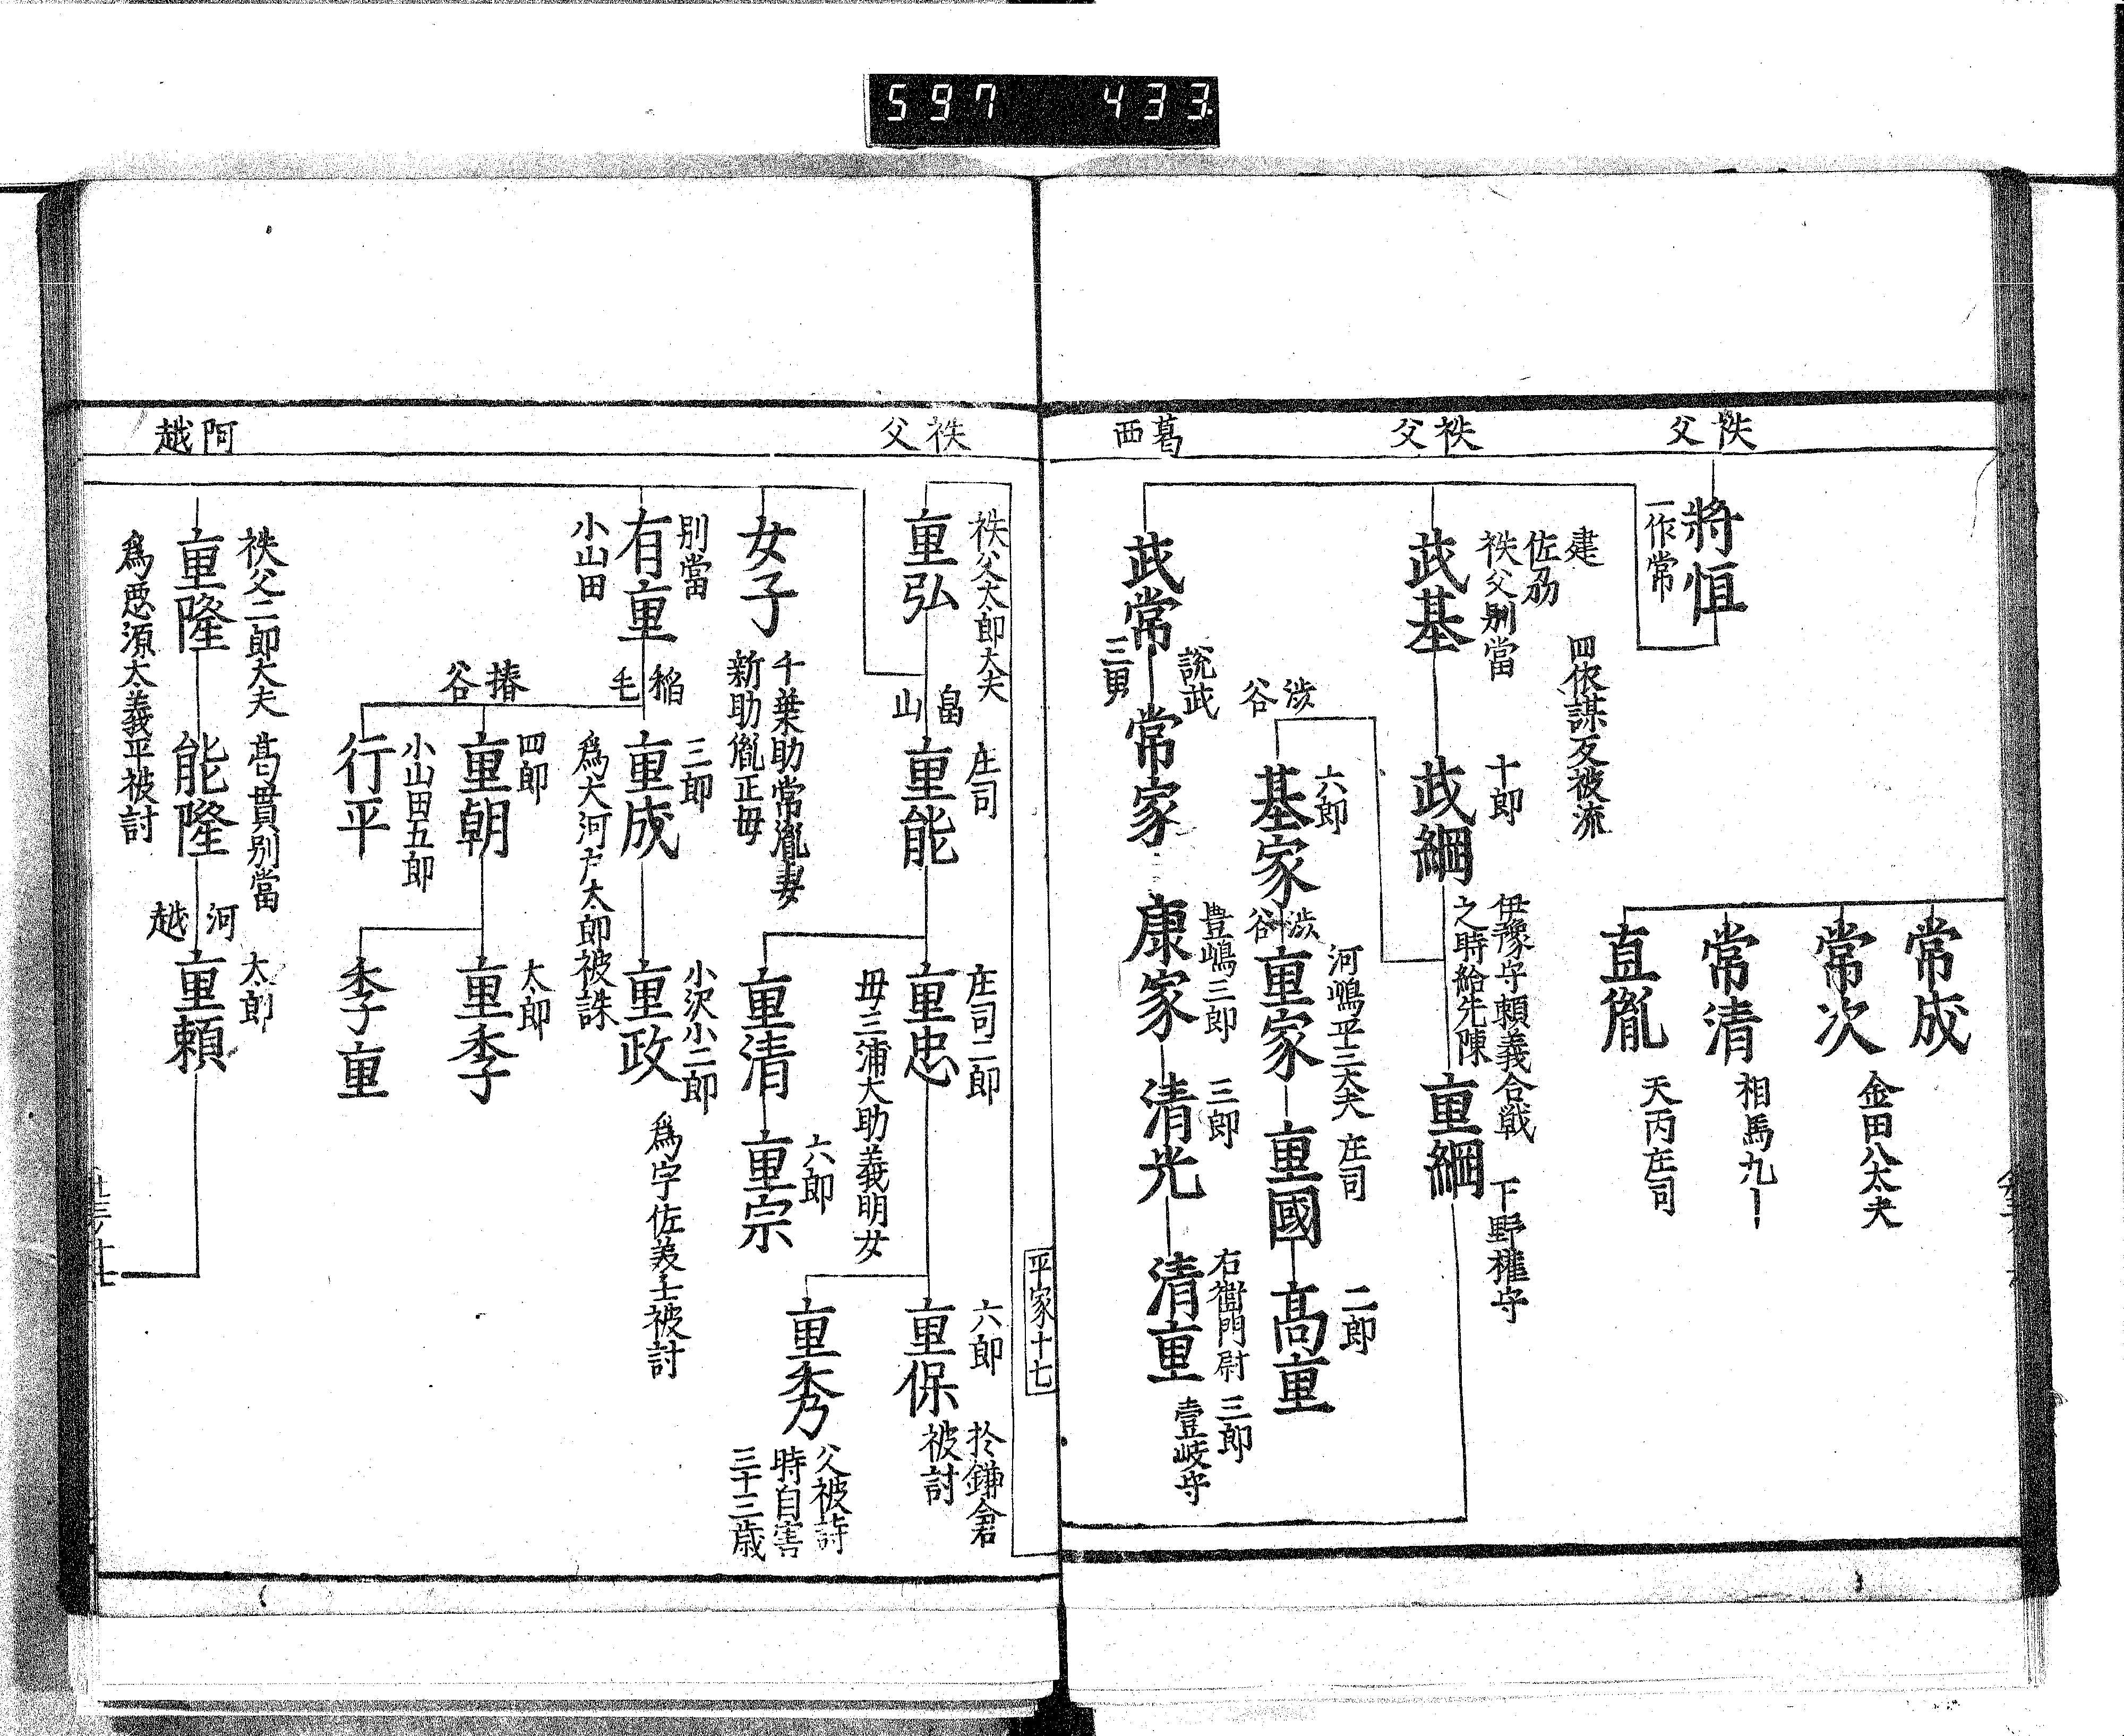 597 433
秩父
秩父
葛西
常成
常次
金田八太夫
常清
相馬九
直胤
天丙庄司
將恒
一作常
武基
建
佐劦
秩父別當
回依謀反被流
武綱
十郎
伊豫守頼義合戦
之時給先陳
重綱
下野権守
渋谷
基家
六郎
渋谷
重家
河嶋平三大夫
重國
庄司
高重
二郎
武常
三男
説武
常家
康家
豊嶋三郎
清光
三郎
清重
右衛門尉 三郎
壹岐守
平家十七
秩父
阿越
重弘
秩父太郎大夫
畠山
重能
庄司
重忠
庄司二郎
母三浦大助義明女
重保
六郎
於鎌倉
被討
重秀
父被討
時自害
三十三歳
重清
重宗
六郎
女子
千葉助常胤妻
新助胤正母
有重
別當
小山田
稲毛
重成
三郎
為大河戸太郎被誅
重政
小沢小二郎
為宇佐美士被討
椿谷
重朝
四郎
重季
太郎
季重
行平
小山田五郎
重隆
秩父二郎大夫
為悪源太義平被討
能隆
葛貫別當
河越
重頼
太郎